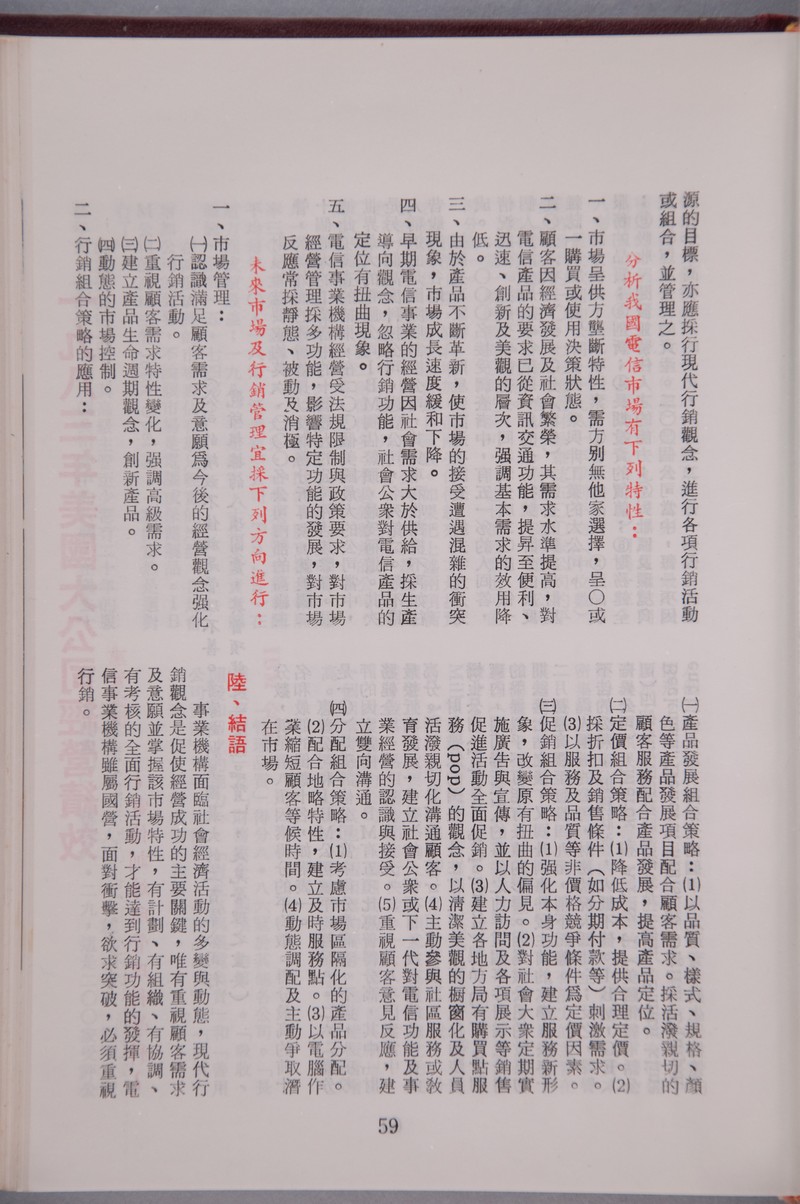 源的目標，亦應採行現代行銷觀念，進行各項行銷活動
或組合，並管理之。
分析我國電信市場有下列特性：
一、市場呈供方壟斷特性，需方別無他家選擇，呈○或
一購買或使用決策狀態。
二、顧客因經濟發展及社會繁榮，其需求水準提高，對
電信產品的要求已從資訊交通功能，提昇至便利、
迅速、創新及美觀的層次，强調基本需求的效用降
低。
三、由於產品不斷革新，使市場的接受遭遇混雜的衝突
現象，市場成長速度緩和下降。
四、早期電信事業的經營因社會需求大於供給，採生產
導向觀念，忽略行銷功能，社會公衆對電信產品的
定位有扭曲現象。
五、電信事業機構經營受法規限制與政策要求，對市場
經營管理採多功能，影響特定功能的發展，對市場
反應常採靜態、被動及消極。
未來市場及行銷管理宜採下列方向進行：
一、市場管理：
㈠認識滿足顧客需求及意願爲今後的經營觀念强化
行銷活動。
㈡重視顧客需求特性變化，强調高級需求。
㈢建立產品生命週期觀念，創新產品。
㈣動態的市場控制。
二、行銷組合策略的應用：
㈠產品發展組合策略：⑴以品質、樣式、規格、顏
色等產品發展項目配合顧客需求。採活潑親切的
顧客服務配合產品發展，提高產品定位。
㈡定價組合策略：⑴降低成本，提供合理定價。⑵
採折扣及銷售條件（如分期付款等）刺激需求。
⑶以服務及品質等非價格競爭條件爲定價因素。
㈢促銷組合策略：⑴强化本身功能，建立服務新形
象，改變原有扭曲的偏見。⑵對社會大衆定期實
施廣告與宣傳，並以人力訪問及各項展示等銷售
促進活動全面促銷。⑶建立各地方局有購買點服
務（pop）的觀念，以清潔美觀的櫥窗化及人員
活潑親切化溝通顧客。⑷主動參與社區服務或敎
育發展，建立社會公衆或下一代對電信功能及事
業經營的認識與接受。⑸重視顧客意見反應，建
立雙向溝通。
㈣分配組合策略：⑴考慮市場區隔化的產品分配。
⑵配合地略特性，建立及時服務點。⑶以電腦作
業縮短顧客等候時間。⑷動態調配及主動爭取潛
在市場。
陸、結語
事業機構面臨社會經濟活動的多變與動態，現代行
銷觀念是促使經營成功的主要關鍵，唯有重視顧客需求
及意願並掌握該市場特性，有計劃、有組織、有協調、
有考核的全面行銷活動，才能達到行銷功能的發揮，電
信事業機構雖屬國營，面對衝擊，欲求突破，必須重視
行銷。
59